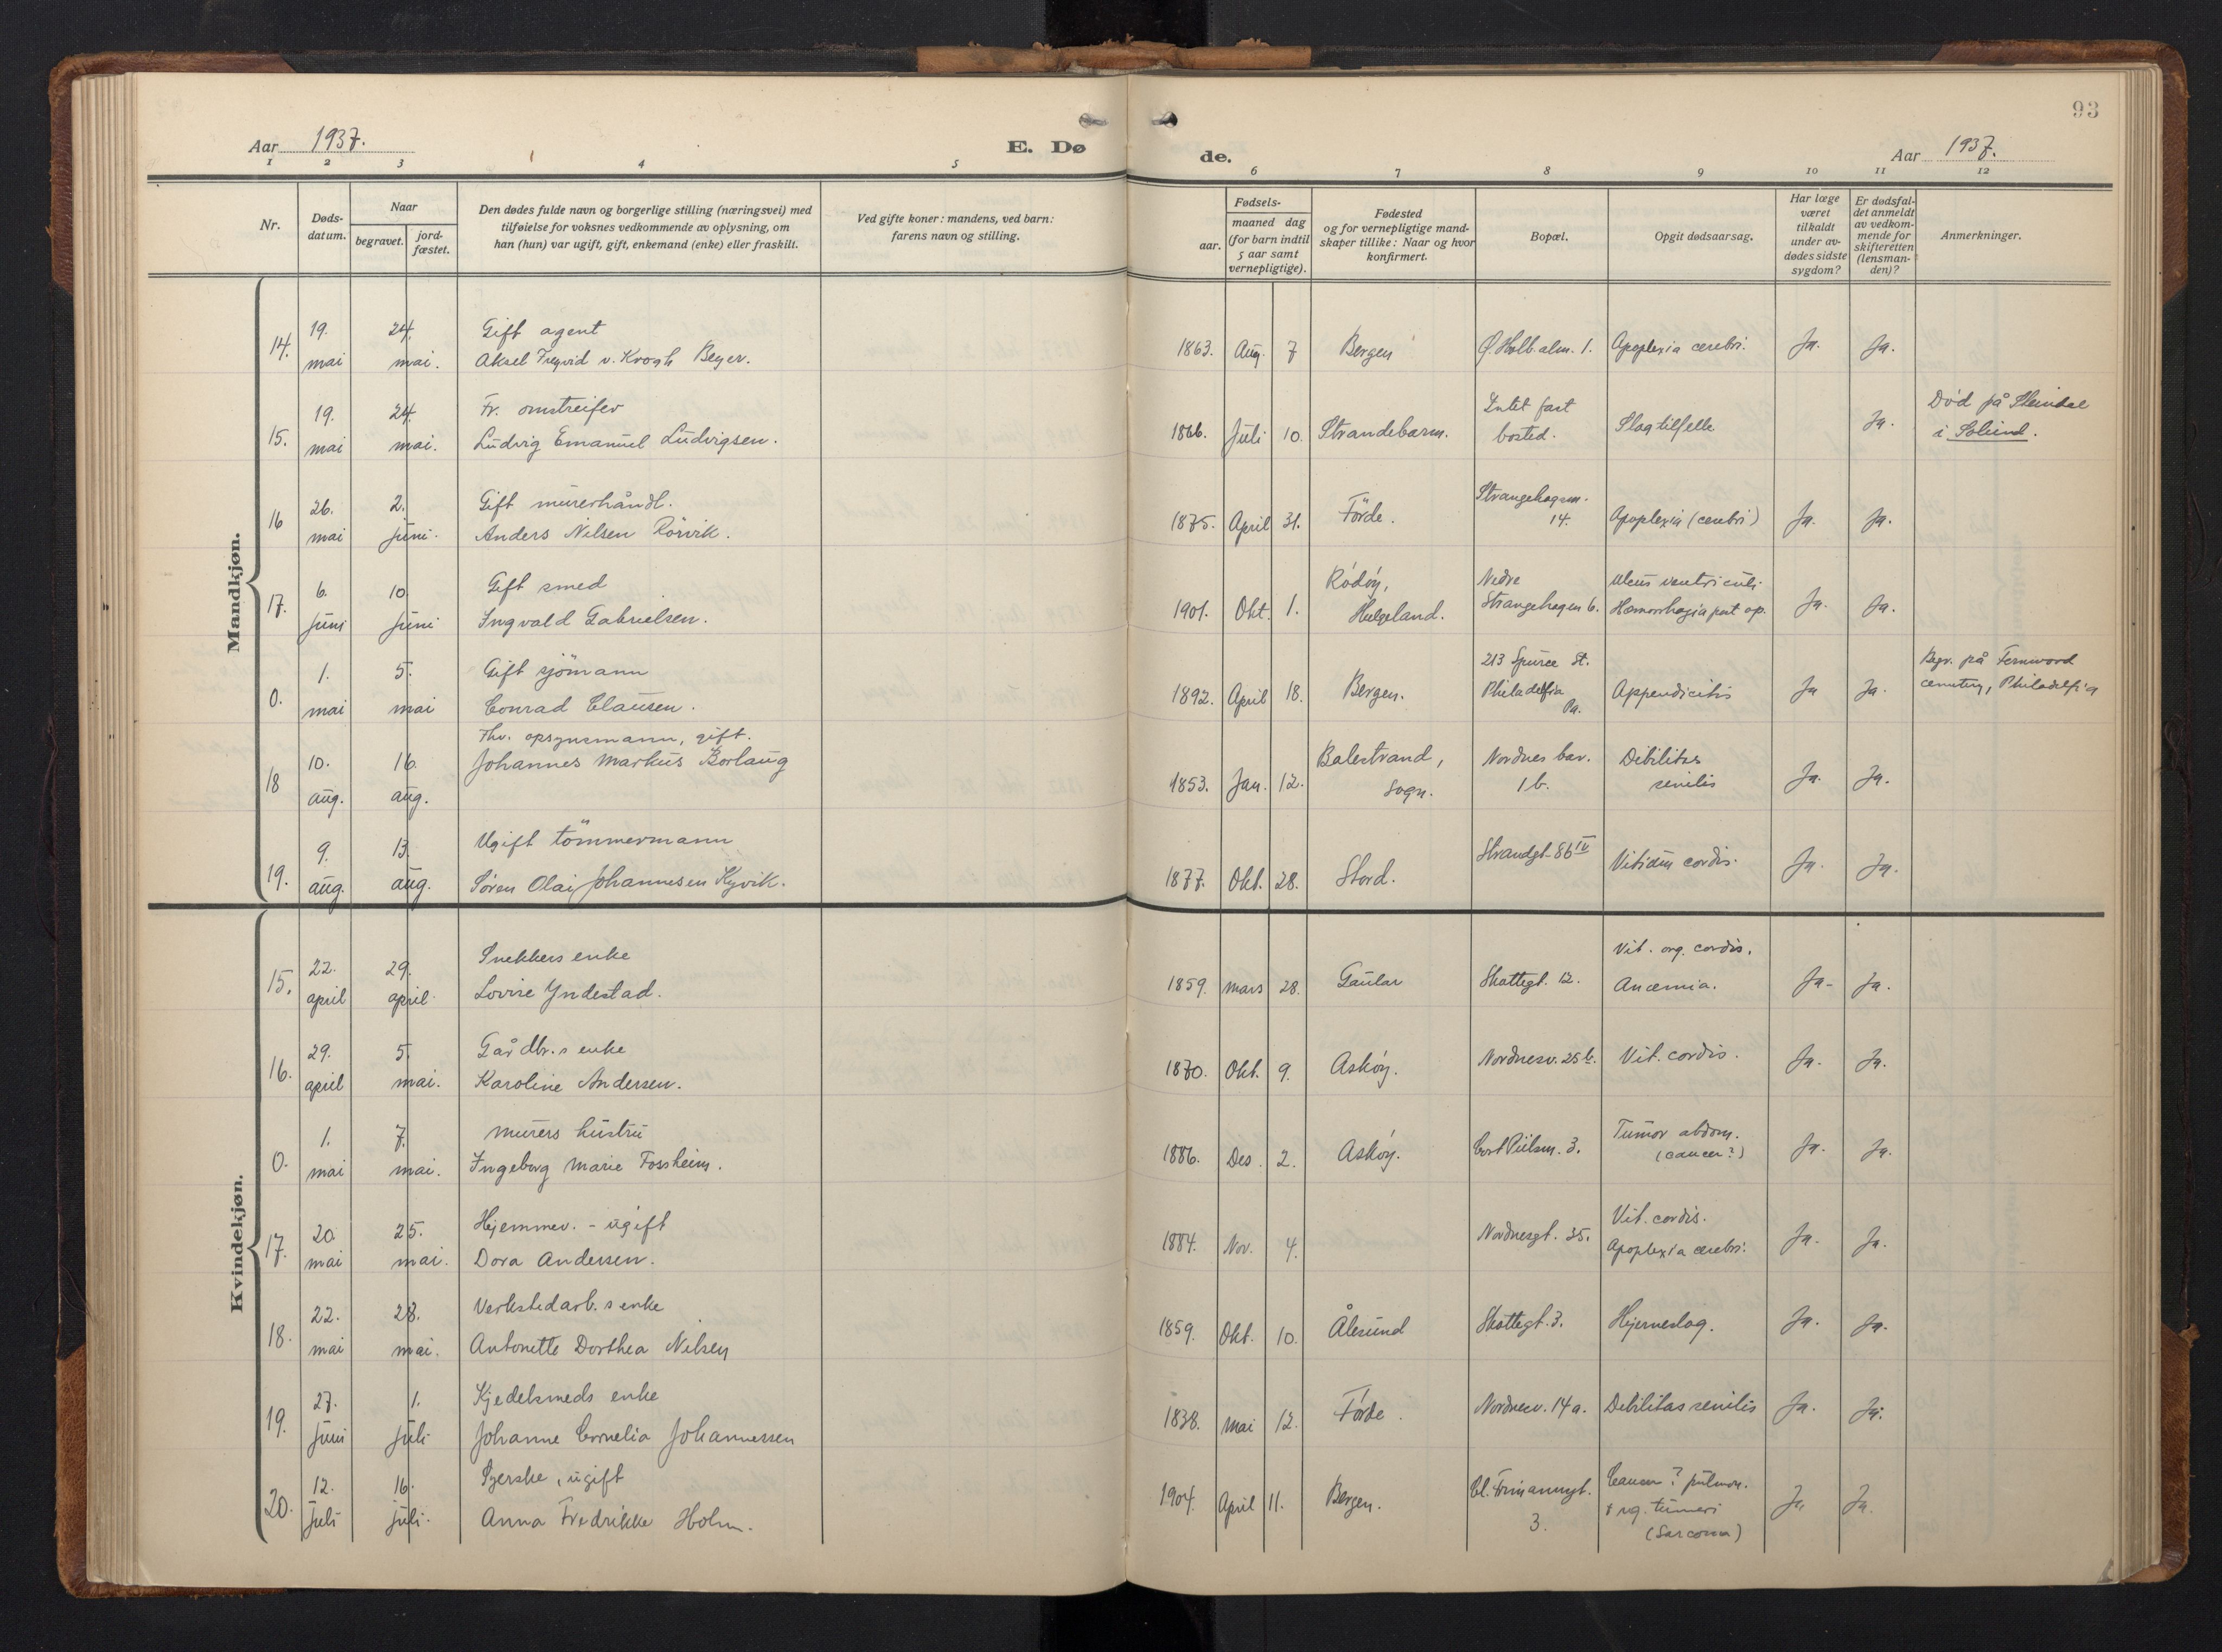 93
Aar 1937.
E. Dø
de.
Aar 1937.
1 2 3 4 5 6 7 8 9 10 11 12
Nr.
Døds-
datum.
Naar
begravet.
jord-
fæstet.
Den dødes fulde navn og borgerlige stilling (næringsvei) med
tilføielse for voksnes vedkommende av oplysning, om
han (hun) var ugift, gift, enkemand (enke) eller fraskilt.
Ved gifte koner: mandens, ved barn:
farens navn og stilling.
Fødsels-
aar.
maaned dag
(for barn indtil
5 aar samt
vernepligtige).
Fødested
og for vernepligtige mand-
skaper tillike: Naar og hvor
konfirmert.
Bopæl.
Opgit dødsaarsag.
Har læge
været
tilkaldt
under av-
dødes sidste
sygdom?
Er dødsfal-
det anmeldt
av vedkom-
mende for
skifteretten
(lensman-
den)?
Anmerkninger.
Mandkjøn.
14. 19. mai 24. mai.
Gift agent
Aksel v. Krogh Beyer.
1863. Aug. 7 Bergen Ø. Holb.alm. 1. Apoplexia cerebri. Ja. Ja.
15. 19. mai 24. mai.
Fr. omstreifer
Ludvig Emanuel Ludvigsen.
1866. Juli 10. Strandebarm. Intet fast
bosted. Slagtilfelle Ja. Død på Steindal
i Solund.
16 26. mai 2. juni.
Gift murerhåndl.
Anders Nilsen Rörvik.
1875. April 31. Förde. Strangehagen.
14. Apoplexia (cerebri) Ja. Ja.
17. 6. juni 10 juni
Gift smed
Ingvald Gabrielsen.
1901. Okt. 1. Rödöy,
Helgeland. Nedre
Strangehagen 6. Ulcus ventriculi
Hæmorrhagia post op. Ja. Ja.
0. 1. mai 5. mai
Gift sjömann
Conrad Clausen.
1892. April 18. Bergen. 213 Spruce St.
Philadelfia
Pa. Appendicitis Ja Ja. Begr. på Fernwood
cemetery, Philadelfia
18 10. aug. 16. aug.
Fhv. opsynsmann, gift.
Johannes Markus Borlaug
1853. Jan. 12. Balestrand,
Sogn. Nordnes bar.
1 b. Debilitas
senilis Ja. Ja.
19. 9. aug. 13. aug.
Ugift tömmermann
Søren Olai Johannesen Kyvik.
1877. Okt. 28. Stord. Strandgt. 86 IV Vitium cordis. Ja. Ja.
Kvindekjøn.
15. 22. april 29. april.
Snekkers enke
Lovise Yndestad.
1859. mars 28. Gaular Skottegt. 12. Vit. org. cordis.
Anæmia. Ja. Ja.
16. 29. april 5. mai.
Gårdbr.s enke
Karoline Andersen.
1870. Okt. 9. Asköy. Nordnesv. 25 b. Vit. cordis. Ja. Ja.
0. 1. mai 7. mai.
Murers hustru
Ingeborg Marie Fossheim.
1886. Des. 2. Asköy. Cort Piilsm. 3. Tumor abdom.
(cancer?) Ja. Ja.
17. 20. mai 25. mai.
Hjemmev. - ugift
Dora Andersen.
1884. Nov. 4. Nordnesgt. 35. Vit. cordis.
Apoplexia cerebri. Ja. Ja.
18. 22. mai 28. mai.
Verkstedarb.s enke
Antonette Dorthea Nilsen
1859. Okt. 10. Ålesund Skottegt. 3. Hjerneslag. Ja. Ja.
19. 27. juni 1. juli
Kjedelsmeds enke
Johanne Cornelia Johannessen
1838. Mai 12. Förde. Nordnesv. 14a. Debilitas senilis Ja. Ja.
20. 12. juli 16. juli.
Syerske, ugift
Anna Fredrikke Holm.
1904. April 11. Bergen. Cl. Frimannsgt.
3. Cancer? pulmon.
tumori
(Sarcoma) Ja Ja.